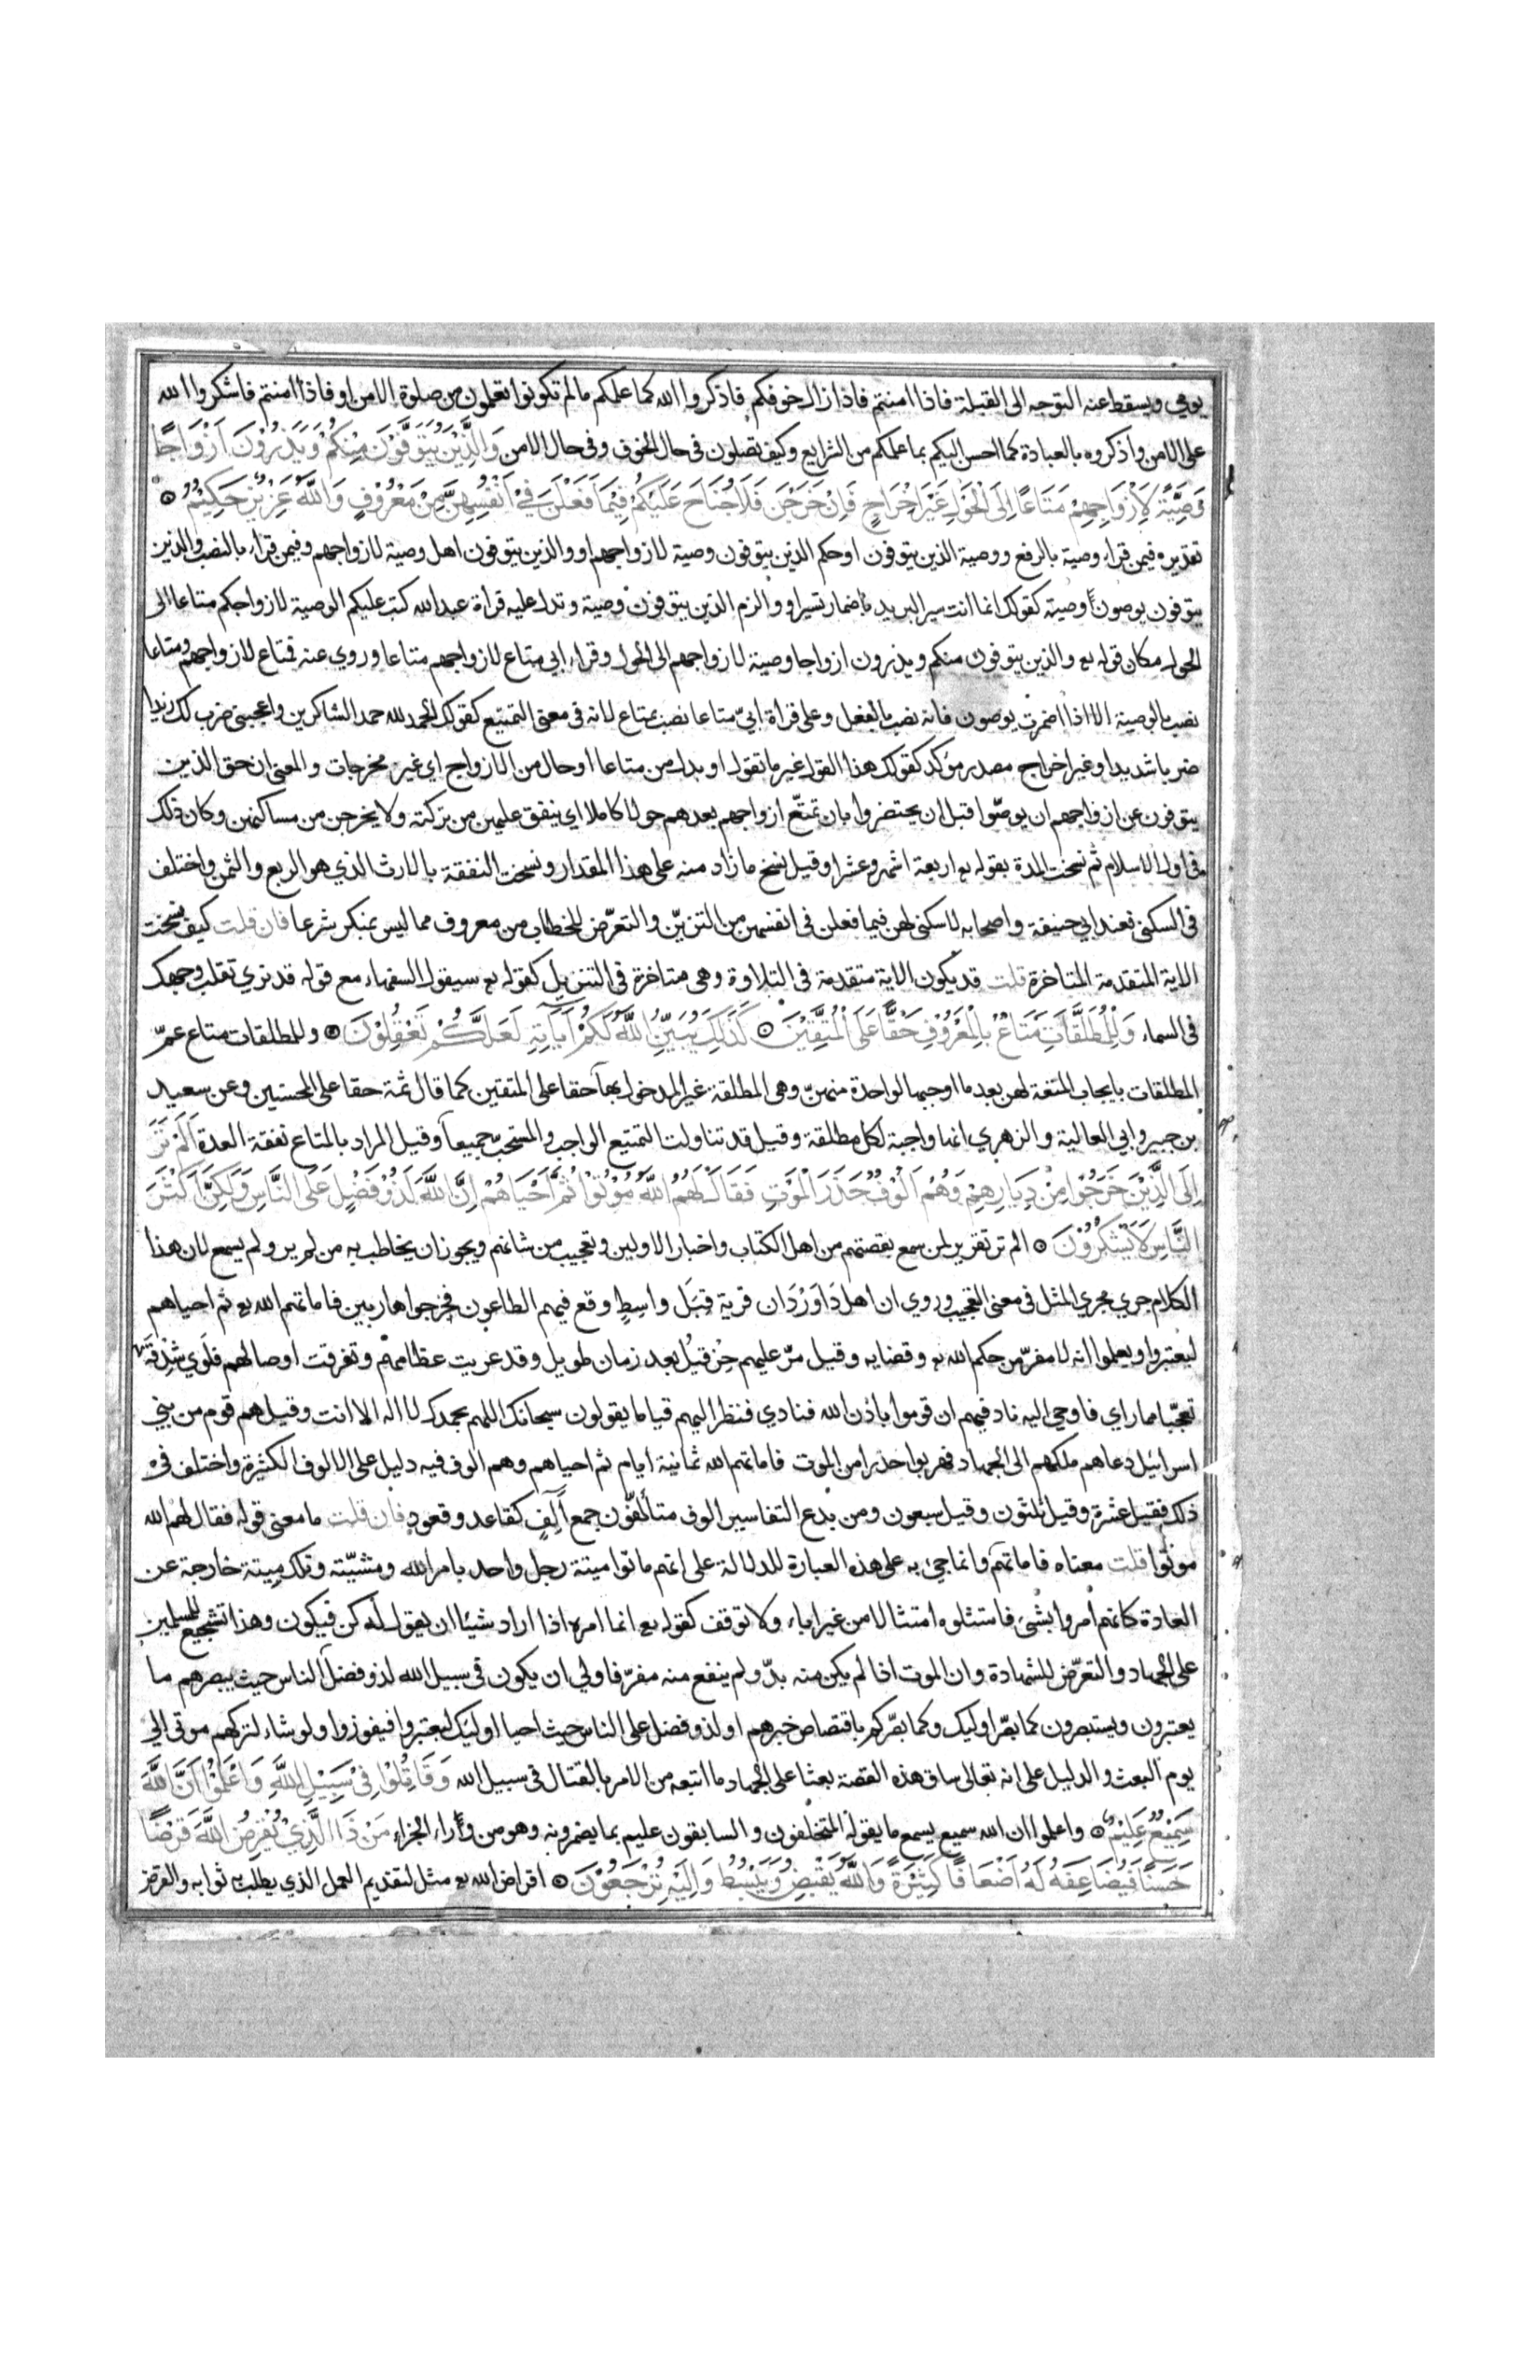 يومي ويسقط عنه التوجه الى القبلة فاذا امنتم فاذا زال خوفكم فاذكروا الله كما علمكم ما لم تكونوا تعلمون من صلوة الامن او فاذا امنتم فاشكروا الله
على الامن واذكروه بالعبادة كما احسن اليكم بما علمكم من الشرايع وكيف تصلون فى حال الخوف وفى حال الامن وَالَّذِيْنَ يُتَوَفَّوْنَ مِنْكُمْ وَيَذَرُوْنَ اَزْوَاجًا
وَصِيَّةً لِاَزْوَاجِهِمْ مَتَاعًا اِلَى الْحَوْلِ غَيْرَ اِخْرَاجٍ فَاِنْ خَرَجْنَ فَلَا جُنَاحَ عَلَيْكُمْ فِيْمَا فَعَلْنَ فِيْ اَنْفُسِهِنَّ مِنْ مَعْرُوْفٍ وَاللهُ عَزِيْزٌ حَكِيْمٌ
تقديره فيمن قراء وصية بالرفع ووصية الذين يتوفون او حكم الذين يتوفون وصية لازواجهم او والذين يتوفون اهل وصية لازواجهم وفيمن قراء بالنصب والذين
يتوفون يوصون وصية كقولك انما انت سير البريد باضمار تسير او والزم الذين يتوفون وصية وتدل عليه قراة عبد الله كتب عليكم الوصية لازواجكم متاعا الى
الحول مكان قوله تع والذين يتوفون منكم ويذرون ازواجا وصية لازواجهم الى الحول وقراء ابي متاع لازواجهم متاعا وروي عنه فمتاع لازواجهم ومتاعا
نصب بالوصية الا اذا اضمرت يوصون فانه نصب بالفعل وعلى قراة ابيّ متاعا نصب بمتاع لانه فى معنى التمتيع كقولك الحمد لله حمد الشاكرين واعجبنى ضرب لك زيدا
ضربا شديدا وغير اخراج مصدر مؤكد كقولك هذا القول غير ما تقول او بدل من متاعا او حال من الازواج اي غير مخرجات والمعنى ان حق الذين
يتوفون عن ازواجهم ان يوصّوا قبل ان يحتضروا بان تمتّع ازواجهم بعدهم حولا كاملا اي ينفق عليهن من تركته ولا يخرجن من مساكنهن وكان ذلك
فى اول الاسلام ثم نسخت المدة بقوله تع اربعة اشهر وعشرا وقيل نسخ ما زاد منه على هذا المقدار ونسخت النفقة بالارث الذي هو الربع والثمن واختلف
فى السكنى فعند ابي حنيفة واصحابه لا سكنى لهن فيما فعلن فى انفسهن من التزيّن والتعرّض للخطاب من معروف مما ليس بمنكر شرعا فان قلت كيف نسخت
الاية المتقدمة المتاخرة قلت قد يكون الاية متقدمة فى التلاوة وهى متاخرة فى التنزيل كقوله تع سيقول السفهاء مع قوله قد نري تقلب وجهك
فى السماء وَلِلْمُطَلَّقَاتِ مَتَاعٌ بِالْمَعْرُوْفِ حَقًّا عَلَى الْمُتَّقِيْنَ كَذٰلِكَ يُبَيِّنُ اللهُ لَكُمْ اٰيَاتِهِ لَعَلَّكُمْ تَعْقِلُوْنَ وللمطلقات متاع عمّ
المطلقات بايجاب المتعة لهن بعد ما اوجبها لواحدة منهنّ وهى المطلقة غير المدخول بها حقا على المتقين كما قال ثمة حقا على المحسنين وعن سعيد
بن جبير وابي العالية والزهري انها واجبة لكل مطلقة وقيل قد تناولت التمتيع الواجب والمستحبّ جميعا وقيل المراد بالمتاع نفقة العدة اَلَمْ تَرَ
اِلَى الَّذِيْنَ خَرَجُوْا مِنْ دِيَارِهِمْ وَهُمْ اُلُوْفٌ حَذَرَ الْمَوْتِ فَقَالَ لَهُمُ اللهُ مُوْتُوْا ثُمَّ اَحْيَاهُمْ اِنَّ اللهَ لَذُوْ فَضْلٍ عَلَى النَّاسِ وَلٰكِنَّ اَكْثَرَ
النَّاسِ لَا يَشْكُرُوْنَ الم تر تقرير لمن سمع بقصتهم من اهل الكتاب واخبار الاولين وتعجيب من شانهم ويجوز ان يخاطب به من لم ير ولم يسمع لان هذا
الكلام جري مجري المثل فى معنى التعجيب وروي ان اهل دَاوَرْدَان قرية قِبَل واسِطٍ وقع فيهم الطاعون فخرجوا هاربين فاماتهم الله تع ثم احياهم
ليعتبروا ويعلموا انه لا مفرّ من حكم الله تع وقضايه وقيل مرّ عليهم حِزقيل بعد زمان طويل وقد عريت عظامهم وتفرقت اوصالهم فلوي شِدقَه
تعجّبا مما راي فاوحي اليه ناد فيهم ان قوموا باذن الله فنادي فنظر اليهم قياما يقولون سبحانك اللهم بحمدك لا اله الا انت وقيل هم قوم من بني
اسرائيل دعاهم ملكهم الى الجهاد فهربوا حذرا من الموت فاماتهم الله ثمانية أيام ثم احياهم وهم الوف فيه دليل على الالوف الكثيرة واختلف فى
ذلك فقيل عشرة وقيل ثلثون وقيل سبعون ومن بدع التفاسير الوف متالّفون جمع آلِفٍ كقاعد وقعود فان قلت ما معنى قوله فقال لهم الله
موتوا قلت معناه فاماتهم وانما جئ به على هذه العبارة للدلالة على انهم ماتوا ميتة رجل واحد بامر الله ومشيّته وتلك ميتة خارجة عن
العادة كانهم أمروا بشئ فامتثلوه امتثالا من غير اباء ولا توقف كقوله تع انما امره اذا اراد شيئا ان يقول له كن فيكون وهذا تشجيع للمسلمين
على الجهاد والتعرّض للشهادة وان الموت اذا لم يكن منه بدّ ولم ينفع منه مفرّ فاولي ان يكون فى سبيل الله لذو فضل الناس حيث يبصرهم ما
يعتبرون ويستبصرون كما بصّر اوليك وكما بصّركم باقتصاص خبرهم او لذو فضل على الناس حيث احيا اوليك ليعتبروا فيفوزوا ولو شاء لتركهم موتي الي
يوم البعث والدليل على انه تعالى ساق هذه القصة بعثا على الجهاد ما اتبعه من الامر بالقتال فى سبيل الله وَقَاتِلُوْا فِيْ سَبِيْلِ اللهِ وَاعْلَمُوْا اَنَّ اللهَ
سَمِيْعٌ عَلِيْمٌ واعلموا ان الله سميع يسمع ما يقوله المتخلفون والسابقون عليم بما يضمرونه وهو من وراء الجزاء مَنْ ذَا الَّذِيْ يُقْرِضُ اللهَ قَرْضًا
حَسَنًا فَيُضَاعِفَهُ لَهُ اَضْعَافًا كَثِيْرَةً وَاللهُ يَقْبِضُ وَيَبْسُطُ وَاِلَيْهِ تُرْجَعُوْنَ اقراض الله تع مثل لتقديم العمل الذي يطلب ثوابه والقرض